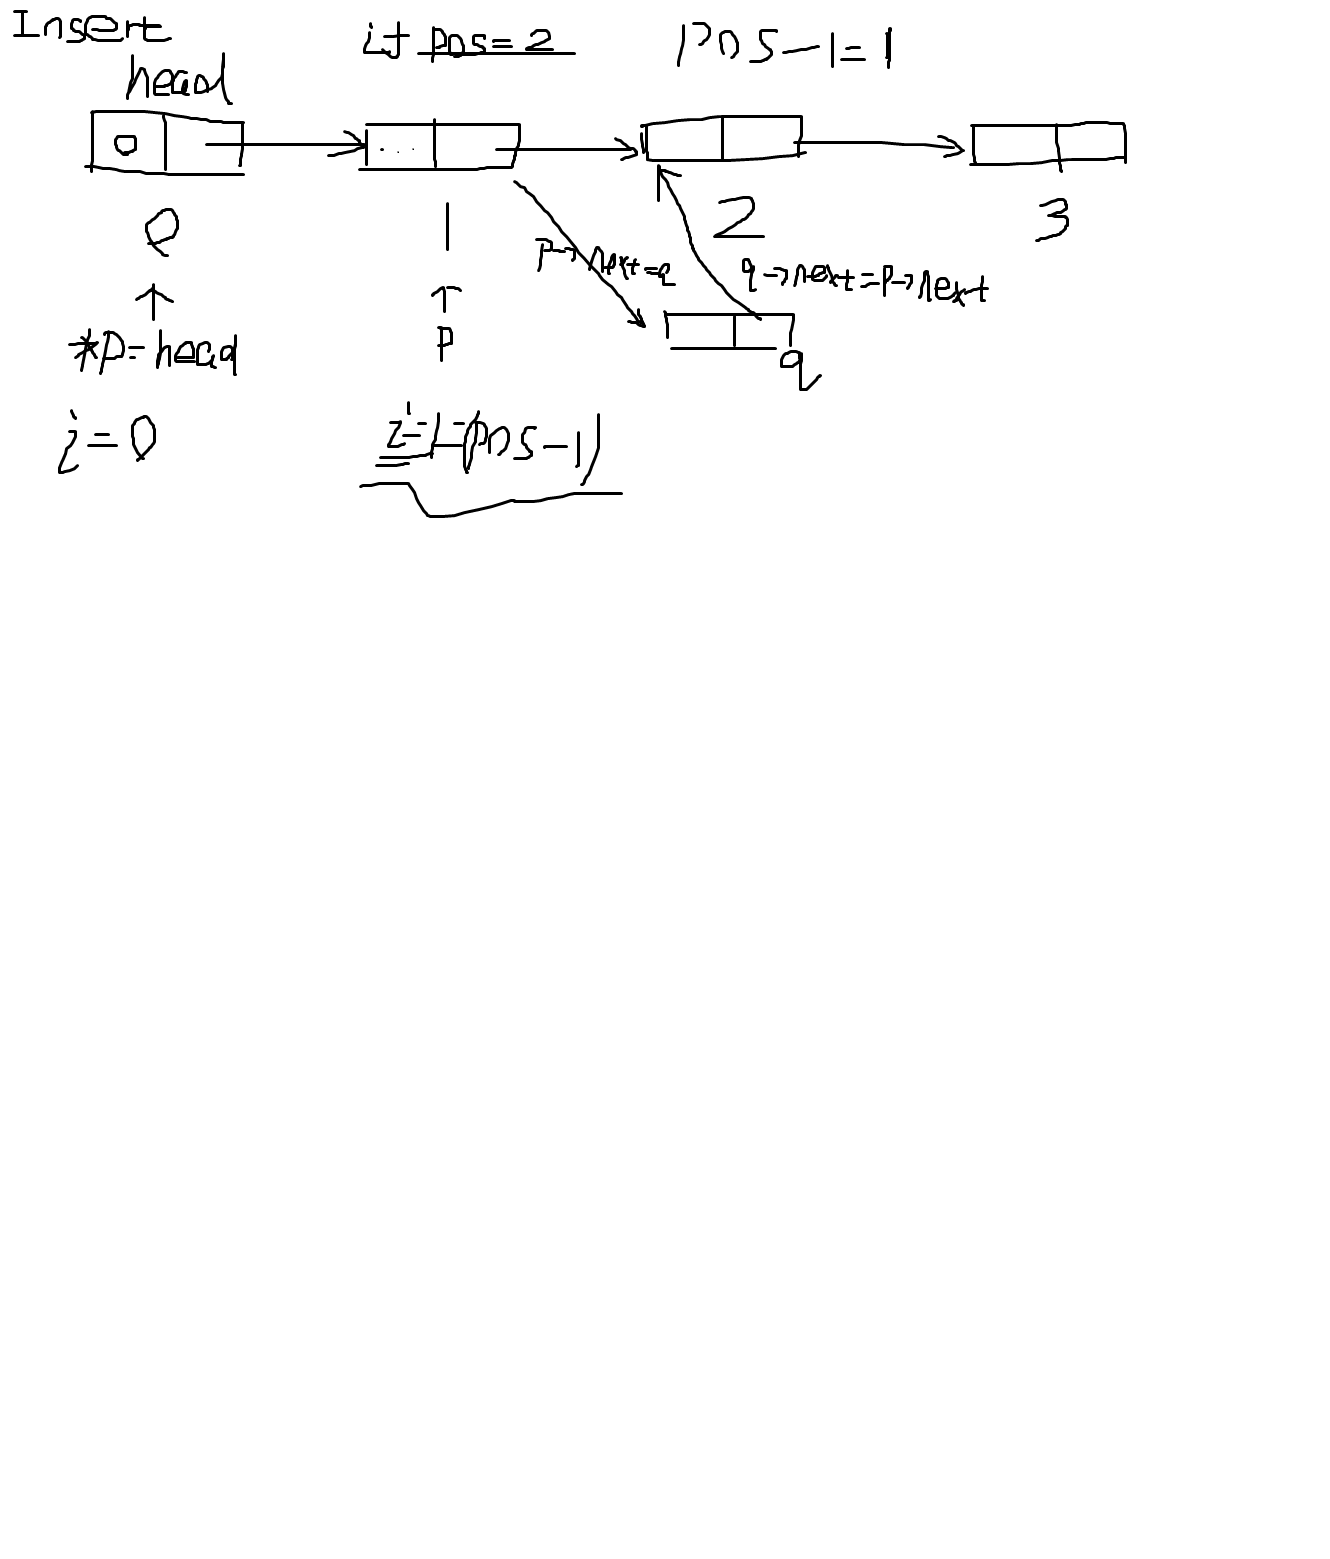 Insert
if pos=2
pos-1=1
head
0
0
1
2
3
p→next=q
q→next=p→next
*p=head
p
q
i=0
i=1=(pos-1)